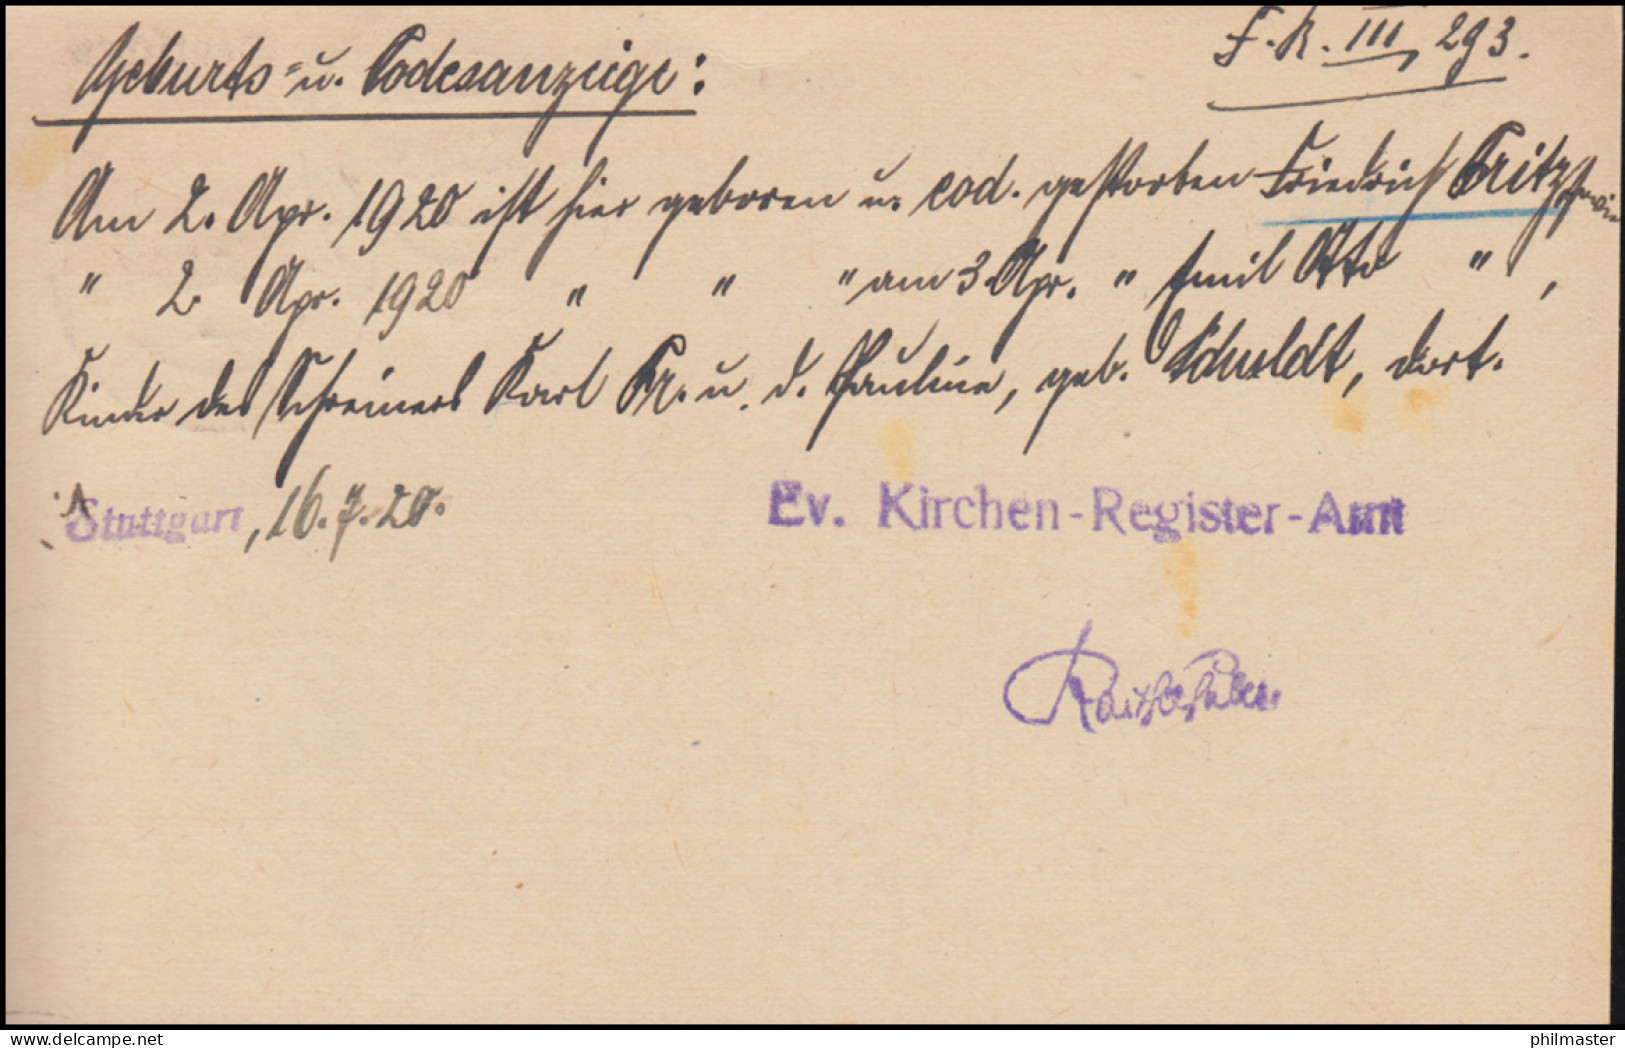 F. R. III, 293.
Geburts- u. Todesanzeige:
Am 2. Apr. 1920 ist hier geboren u. eod. gestorben Friedrich
" 2. Apr. 1920 " " " am 3. Apr. " Emil Otto " ,
Kinder des Schreiners Karl Fr. u. d. Pauline, geb. Schuldt, dort.
Stuttgart, 16.7.20.
Ev. Kirchen-Register-Amt
philmaster
delcampe.net